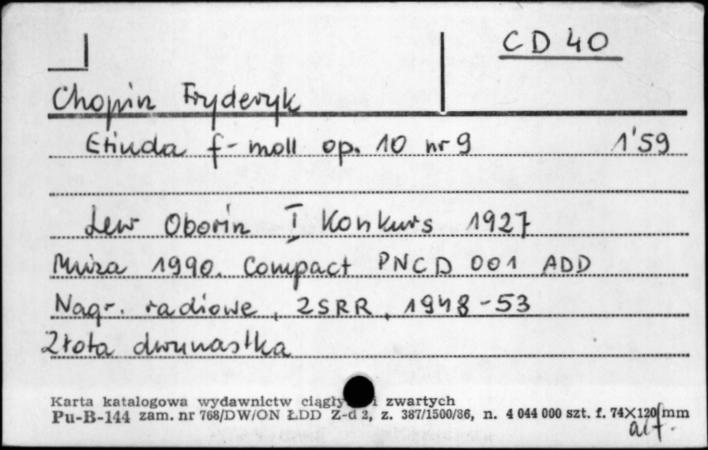 CD 40
Chopin Fryderyk
Etiuda f-moll op. 10 nr 9 1'59
Lew Oborin I Konkurs 1927
Muza 1990. Compact PNCD 001 ADD
Nagr. radiowe, ZSRR, 1948-53
Złota dwunastka
Karta katalogowa wydawnictw ciągły i zwartych
Pu-B-144 zam. nr 768/DW/ON ŁDD Z-d 2, z. 387/1500/86, n. 4 044 000 szt. f. 74×120 mm
alf.